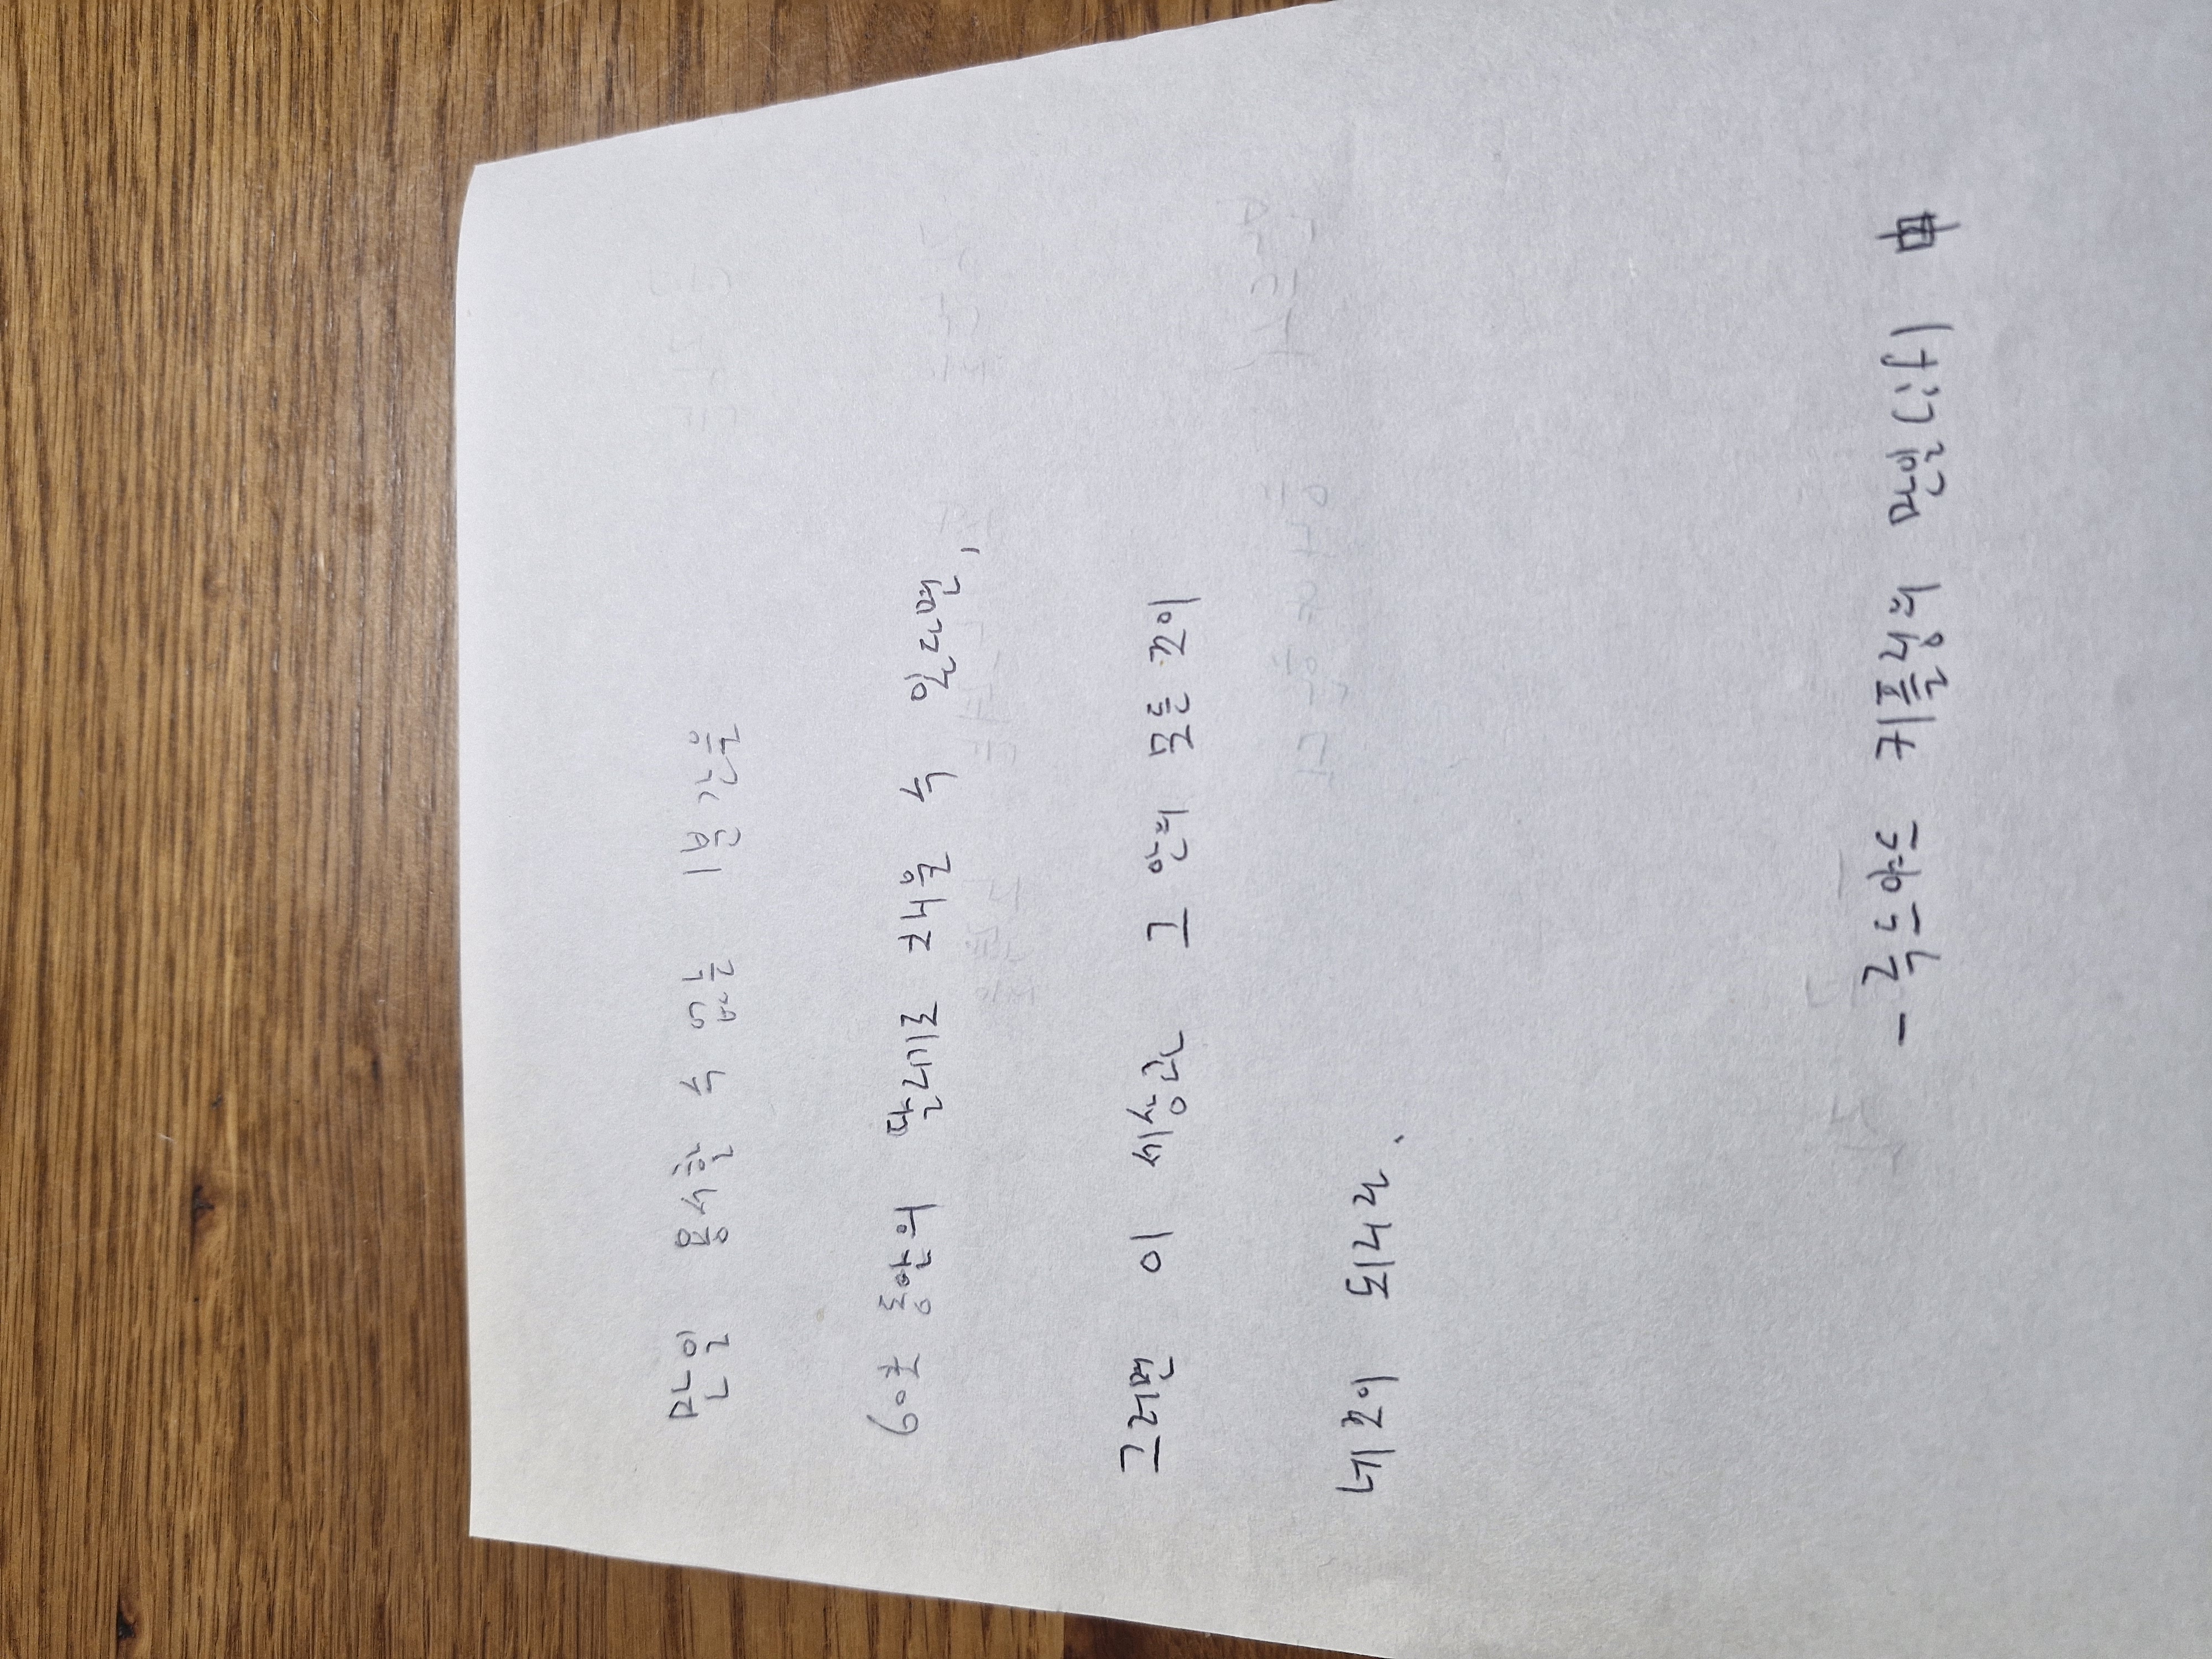 만일 용서할 수 없는 1분간을
60초 동안의 달리기로 채울 수 있다면,
그러면 이 세상과 그 안의 모든 것이
네 것이 되니라.
- 루드야드 키플링의 만일(if)